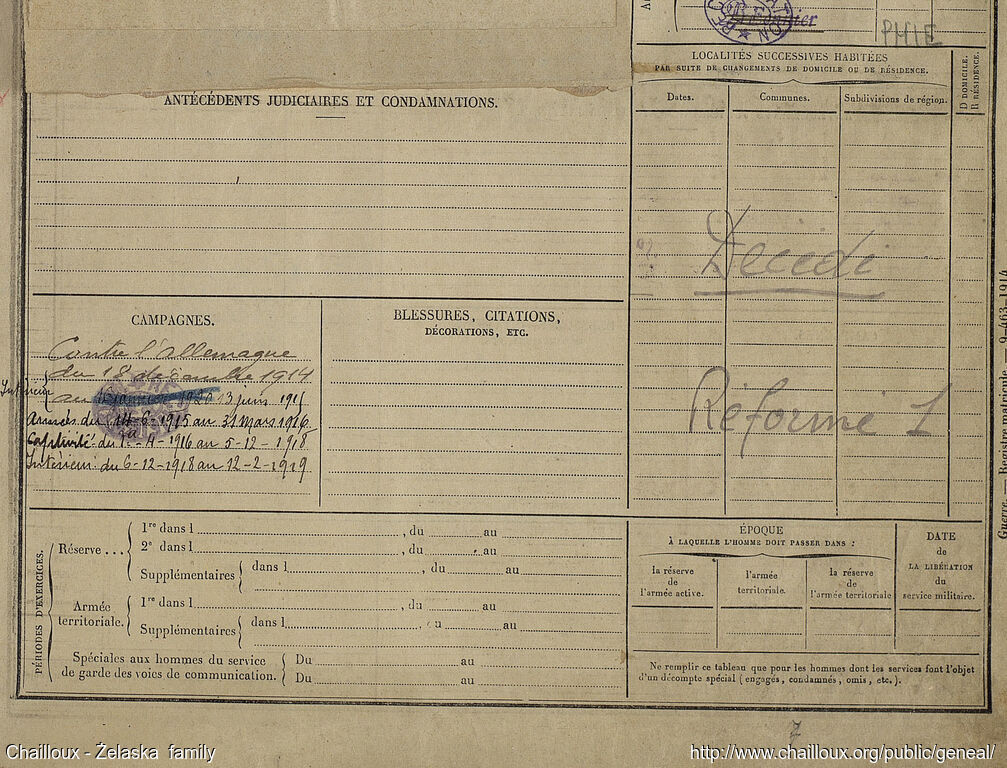 PHIE
LOCALITÉS SUCCESSIVES HABITÉES
PAR SUITE DE CHANGEMENTS DE DOMICILE OU DE RÉSIDENCE.
D DOMICILE.
R RÉSIDENCE.
Dates.
Communes.
Subdivisions de région.
Décédé
Réforme 1
ANTÉCÉDENTS JUDICIAIRES ET CONDAMNATIONS.
CAMPAGNES.
Contre l'Allemagne
du 18 décembre 1914
Intérieur au 13 juin 1915
Armées du 14-6-1915 au 31 Mars 1916
Captivité du 1er-4-1916 au 5-12-1918
Intérieur du 6-12-1918 au 12-2-1919
BLESSURES, CITATIONS,
DÉCORATIONS, ETC.
PÉRIODES D'EXERCICES.
Réserve ...
1re dans l , du au
2e dans l , du au
Supplémentaires dans l , du au
Armée
territoriale.
1re dans l , du au
Supplémentaires dans l , du au
Spéciales aux hommes du service
de garde des voies de communication.
Du au
Du au
ÉPOQUE
À LAQUELLE L'HOMME DOIT PASSER DANS :
la réserve
de
l'armée active.
l'armée
territoriale.
la réserve
de
l'armée territoriale
DATE
de
LA LIBÉRATION
du
service militaire.
Ne remplir ce tableau que pour les hommes dont les services font l'objet
d'un décompte spécial (engagés, condamnés, omis, etc.).
Guerre. Registre matricule. 9-63-1914
7
Chailloux - Żelaska family
http://www.chailloux.org/public/geneal/